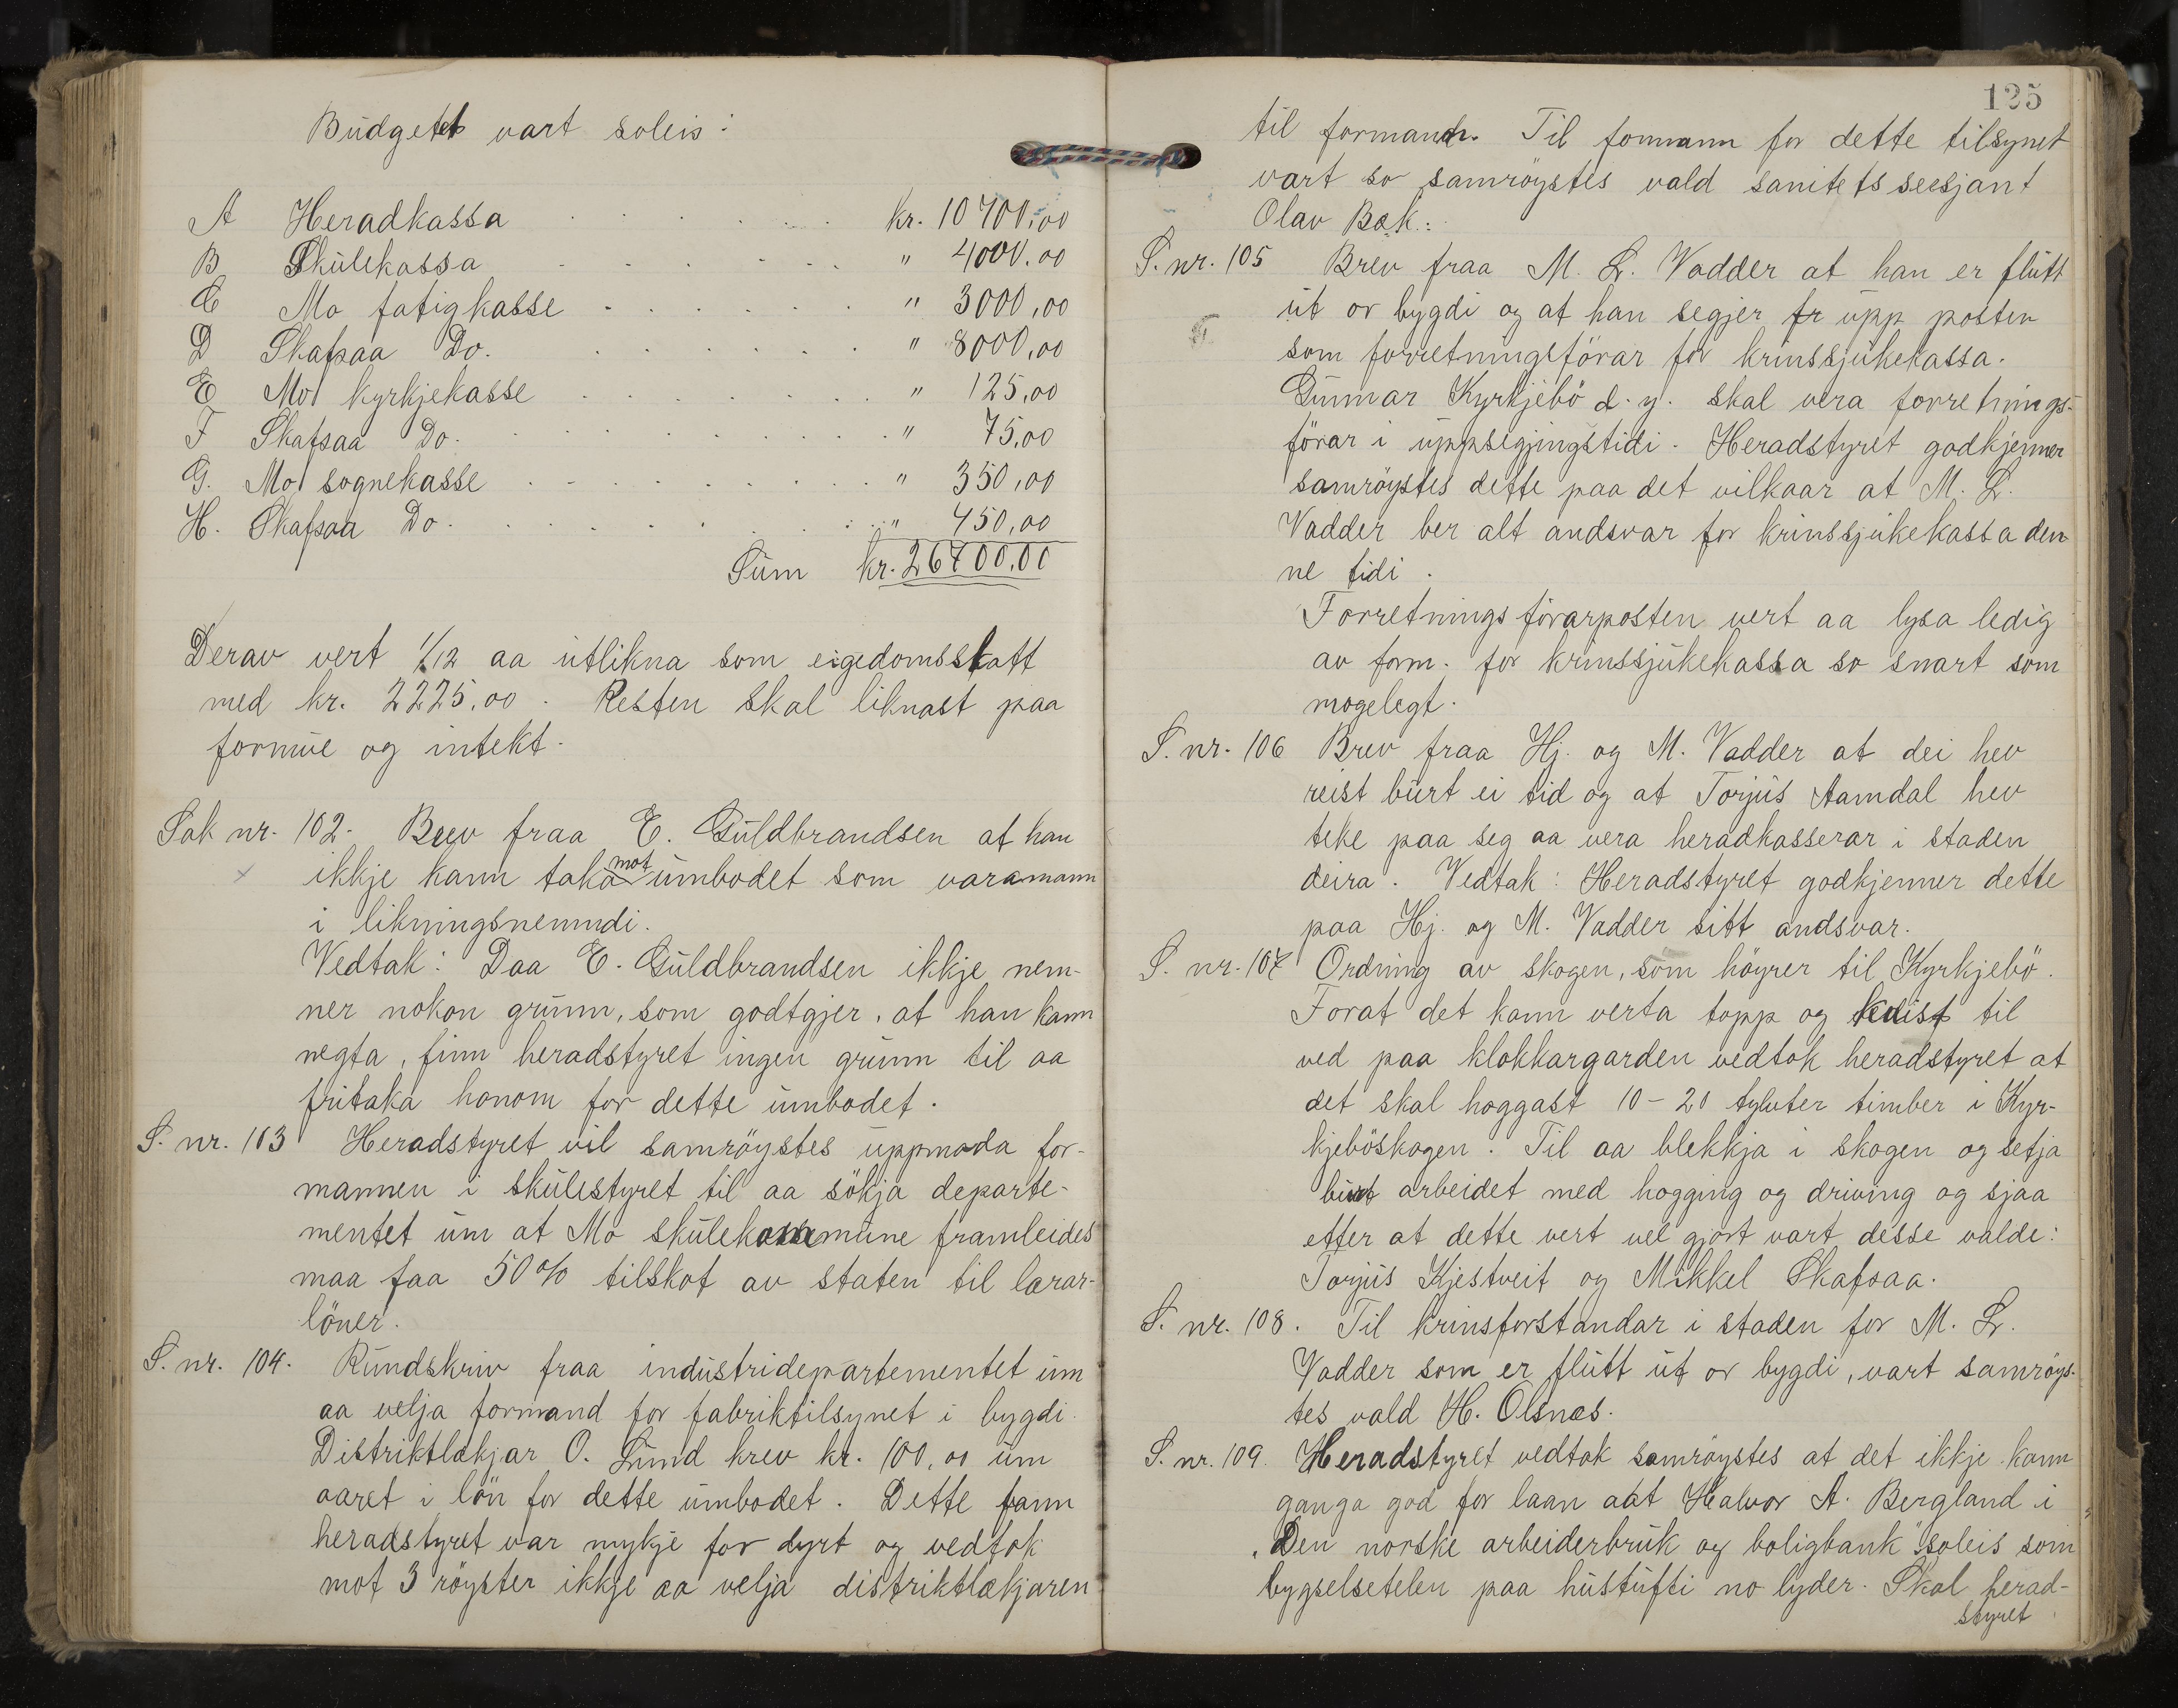 Budgettet vart soleis:
A Heradkassa . . . . . . kr. 10700,00
B Skulekassa . . . . . . " 4000,00
C Mo fatigkasse . . . . . . " 3000,00
D Skafsaa Do. . . . . . . " 8000,00
E Mo kyrkjekasse . . . . . . " 125,00
F Skafsaa Do. . . . . . . " 75,00
G. Mo sognekasse . . . . . . " 350,00
H. Skafsaa Do. . . . . . . " 450,00
Sum kr. 26700,00
Derav vert 1/12 aa utlikna som eigedomsskatt
med kr. 2225,00. Resten skal liknast paa
formue og intekt.
Sak nr. 102. Brev fraa E. Guldbrandsen at han
ikkje kann taka mot umbodet som varamann
i likningsnemndi.
Vedtak: Daa E. Guldbrandsen ikkje nem-
ner nokon grunn, som godtgjer, at han kann
negta, finn heradstyret ingen grunn til aa
fritaka honom for dette umbodet.
S. nr. 103 Heradstyret vil samröystes uppmoda for-
mannen i skulestyret til aa sökja departe-
mentet um at Mo skulekommune framleides
maa faa 50% tilskot av staten til lærar-
löner.
S. nr. 104. Rundskriv fraa industridepartementet um
aa velja formand for fabriktilsynet i bygdi.
Distriktlækjar O. Lund krev kr. 100,00 um
aaret i lön for dette umbodet. Dette fann
heradstyret var mykje for dyrt og vedtok
mot 3 röyster ikkje aa velja distriktlækjaren
125
til formann. Til formann for dette tilsynet
vart so samröystes vald sanitetsseesjant
Olav Bæk.
S. nr. 105 Brev fraa M. L. Vadder at han er flutt
ut or bygdi og at han segjer fr upp posten
som forretningsförar for krinssjukekassa.
Gunnar Kyrkjebö d. y. skal vera forretnings-
förar i uppsegjingstidi. Heradstyret godkjenner
samröystes dette paa det vilkaar at M. L.
Vadder ber alt andsvar for krinssjukekassa den
ne tidi.
Forretningsförarposten vert aa lysa ledig
av form. for krinssjukekassa so snart som
mogelegt.
S. nr. 106 Brev fraa Hj. og M. Vadder at dei hev
reist burt ei tid og at Torjus Aamdal hev
teke paa seg aa vera heradkasserar i staden
deira. Vedtak: Heradstyret godkjenner dette
paa Hj. og M. Vadder sitt andsvar.
S. nr. 107 Ordning av skogen, som höyrer til Kyrkjebö.
Forat det kann verta topp og kvist til
ved paa klokkargarden vedtok heradstyret at
det skal hoggast 10-20 tylvter timber i Kyr-
kjeböskogen. Til aa blekkja i skogen og setja
burt arbeidet med hogging og driving og sjaa
etter at dette vert vel gjort vart desse valde:
Torjus Kjestveit og Mikkel Skafsaa.
S. nr. 108. Til krinsforstandar i staden for M. L.
Vadder som er flutt ut or bygdi, vart samröys-
tes vald H. Olsnes.
S. nr. 109. Heradstyret vedtok samröystes at det ikkje kann
ganga god for laan aat Halvor A. Bergland i
"Den norske arbeiderbruk og boligbank" soleis som
bygselsetelen paa hustufti no lyder. Skal herad-
styret